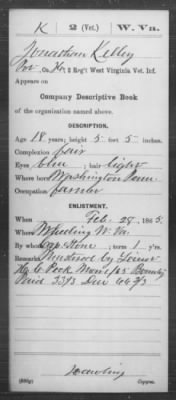 K | 2 (Vet.) | W. Va.
Jonathan Kelley
Co. H, 2 Reg't West Virginia Vet. Inf.
Appears on
Company Descriptive Book
of the organization named above.
DESCRIPTION.
Age 18 years; height 5 feet 5 inches.
Complexion fair
Eyes blue; hair light
Where born Washington
Occupation farmer
ENLISTMENT.
When Feb. 28, 1865
Where Wheeling W. Va.
By whom Cap. ; term 1 y'rs.
Remarks: Mustered by
Bounty
Paid 33 1/3 Due 66 2/3
(886g) Copyist.